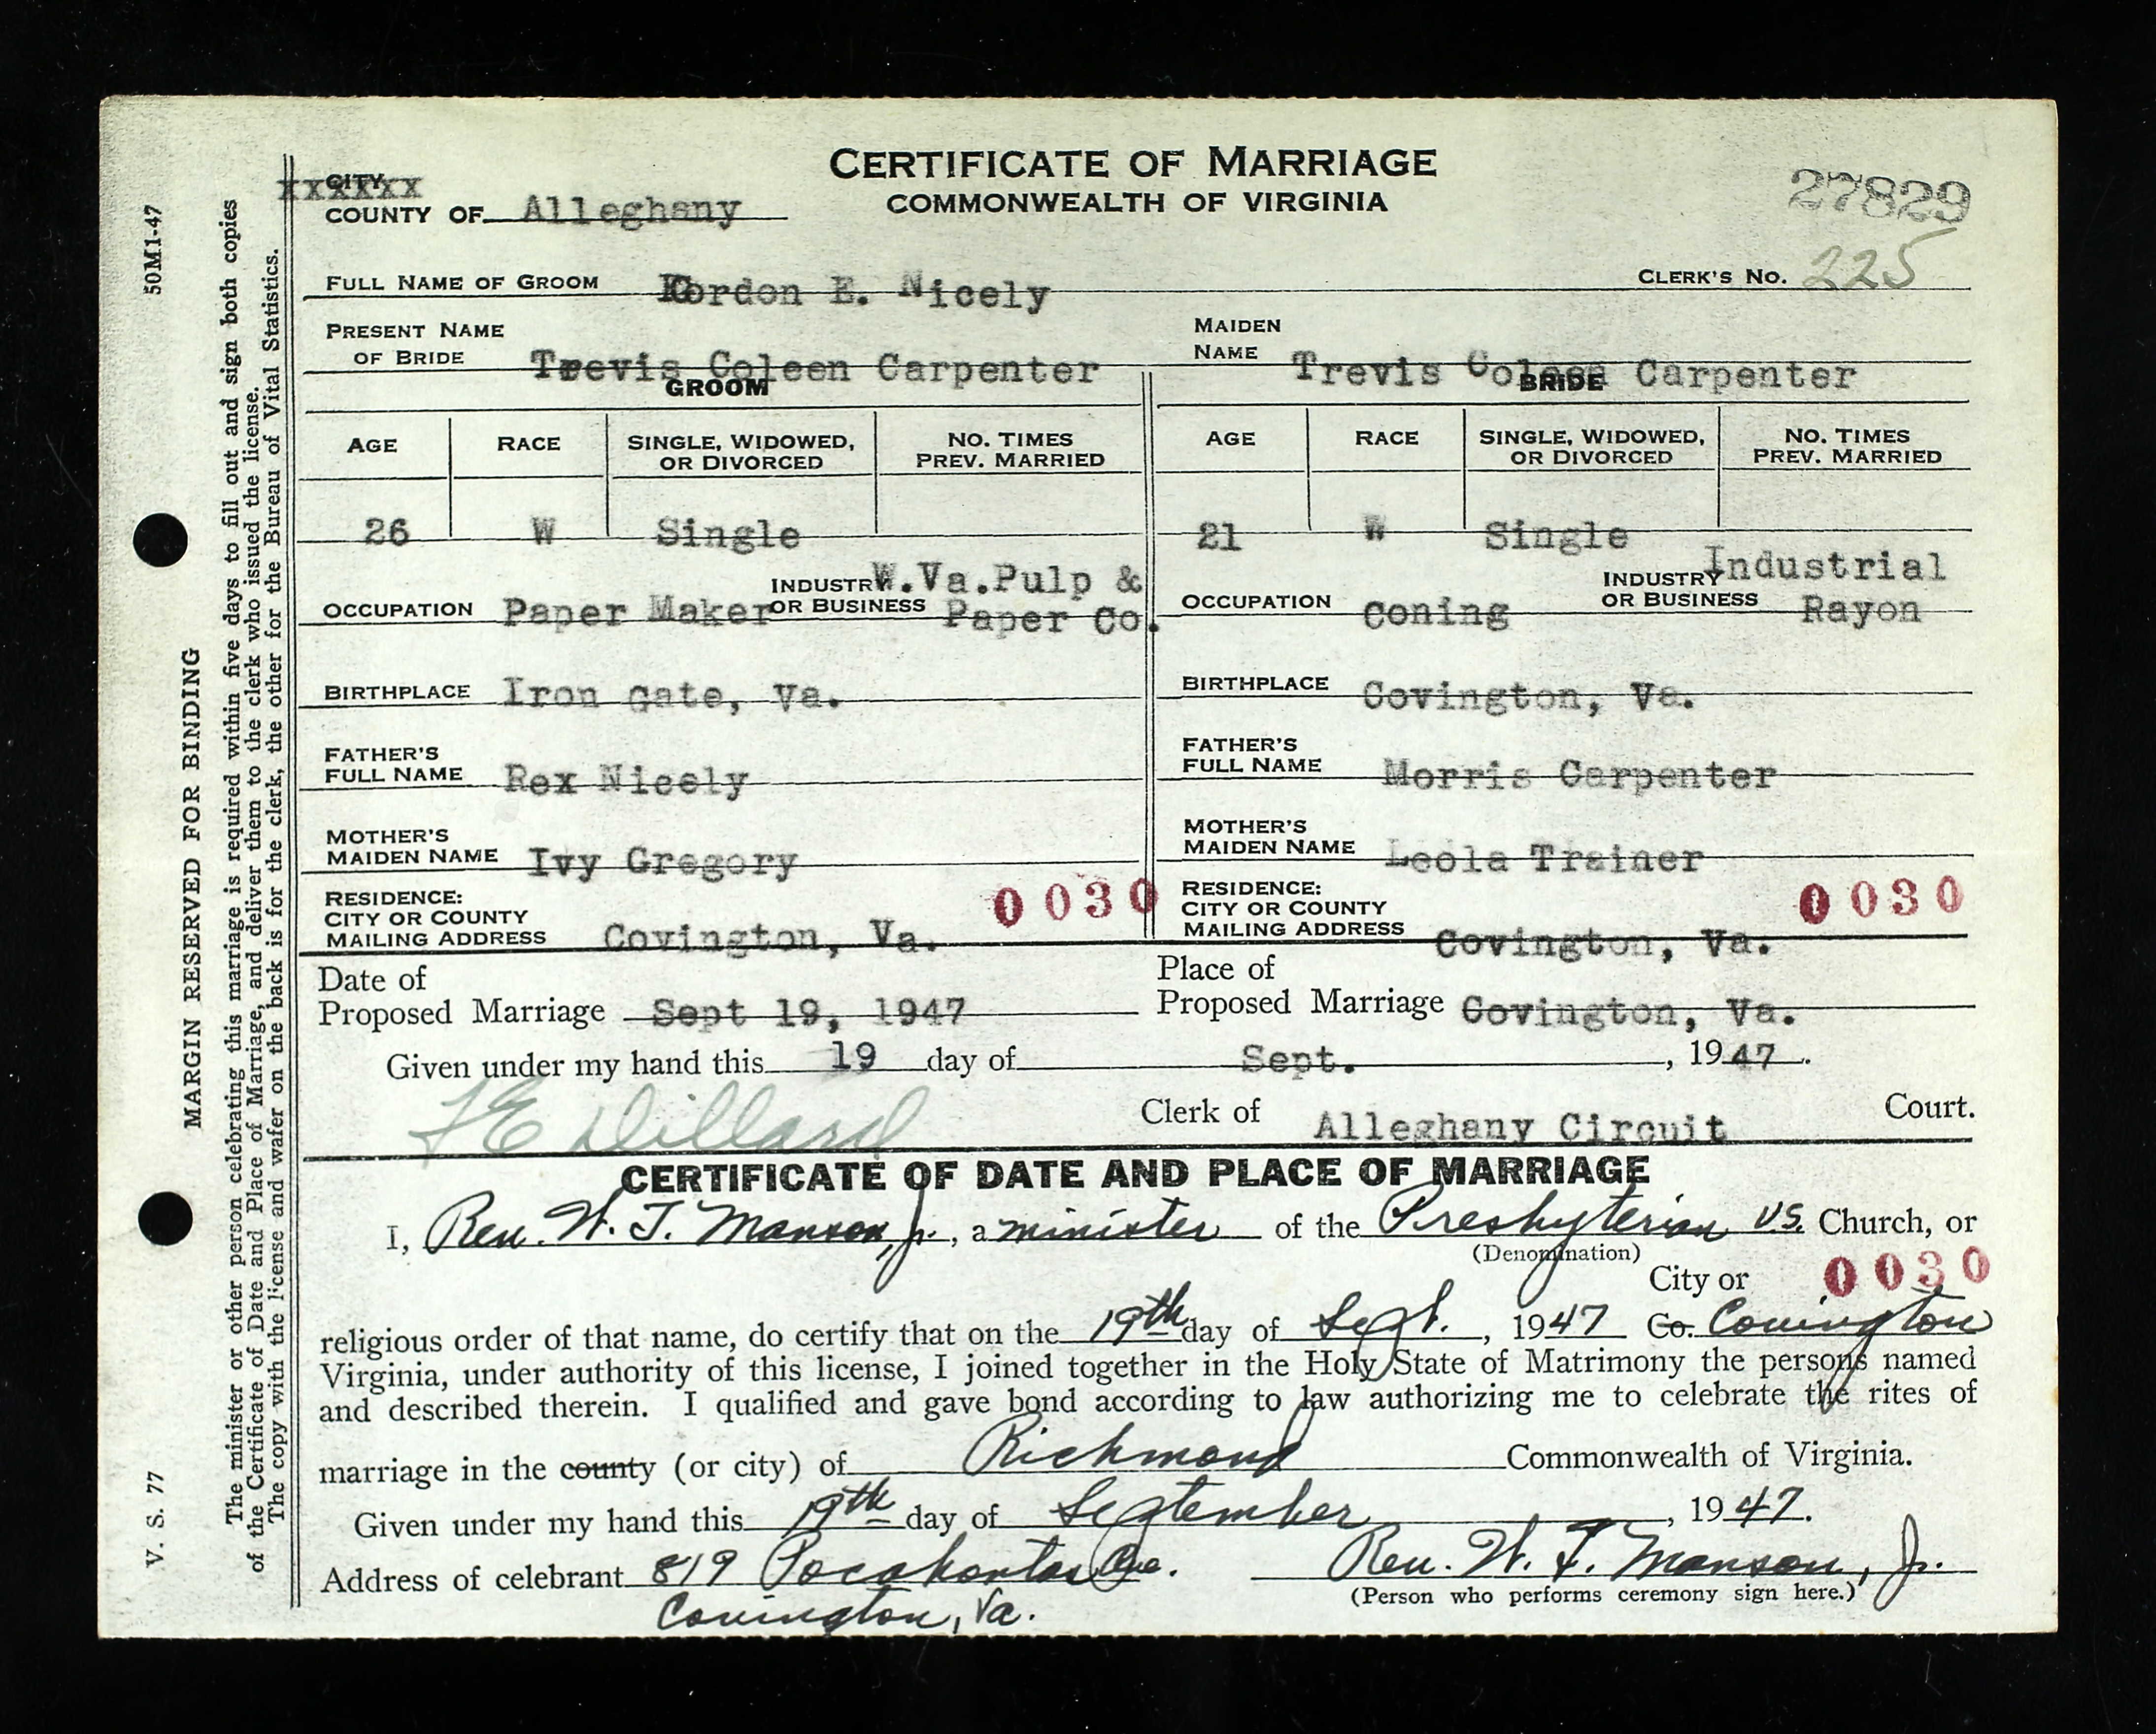 CERTIFICATE OF MARRIAGE
COMMONWEALTH OF VIRGINIA
27829
CITY xxxxxx
COUNTY OF Alleghany
FULL NAME OF GROOM Gordon E. Nicely CLERK'S No. 225
PRESENT NAME OF BRIDE Trevis Coleen Carpenter MAIDEN NAME Trevis Coleen Carpenter
GROOM BRIDE
AGE RACE SINGLE, WIDOWED, OR DIVORCED NO. TIMES PREV. MARRIED AGE RACE SINGLE, WIDOWED, OR DIVORCED NO. TIMES PREV. MARRIED
26 W Single 21 W Single
OCCUPATION Paper Maker INDUSTRY OR BUSINESS W.Va.Pulp & Paper Co. OCCUPATION Coning INDUSTRY OR BUSINESS Industrial Rayon
BIRTHPLACE Iron Gate, Va. BIRTHPLACE Covington, Va.
FATHER'S FULL NAME Rex Nicely FATHER'S FULL NAME Morris Carpenter
MOTHER'S MAIDEN NAME Ivy Gregory MOTHER'S MAIDEN NAME Leola Trainer
RESIDENCE: CITY OR COUNTY MAILING ADDRESS Covington, Va. 0030 RESIDENCE: CITY OR COUNTY MAILING ADDRESS Covington, Va. 0030
Date of Proposed Marriage Sept 19, 1947 Place of Proposed Marriage Covington, Va.
Given under my hand this 19 day of Sept. , 1947.
F E Dillard Clerk of Alleghany Circuit Court.
CERTIFICATE OF DATE AND PLACE OF MARRIAGE
I, Rev. W. T. Manson, Jr., a minister of the Presbyterian U.S. Church, or
(Denomination)
City or 0030
religious order of that name, do certify that on the 19th day of Sept. , 1947 Co. Covington
Virginia, under authority of this license, I joined together in the Holy State of Matrimony the persons named
and described therein. I qualified and gave bond according to law authorizing me to celebrate the rites of
marriage in the county (or city) of Richmond Commonwealth of Virginia.
Given under my hand this 19th day of September , 1947.
Address of celebrant 819 Pocahontas Ave. Rev. W. T. Manson, Jr.
Covington, Va. (Person who performs ceremony sign here.)
50M1-47
MARGIN RESERVED FOR BINDING
V. S. 77
The minister or other person celebrating this marriage is required within five days to fill out and sign both copies
of the Certificate of Date and Place of Marriage, and deliver them to the clerk who issued the license.
The copy with the license and wafer on the back is for the clerk, the other for the Bureau of Vital Statistics.